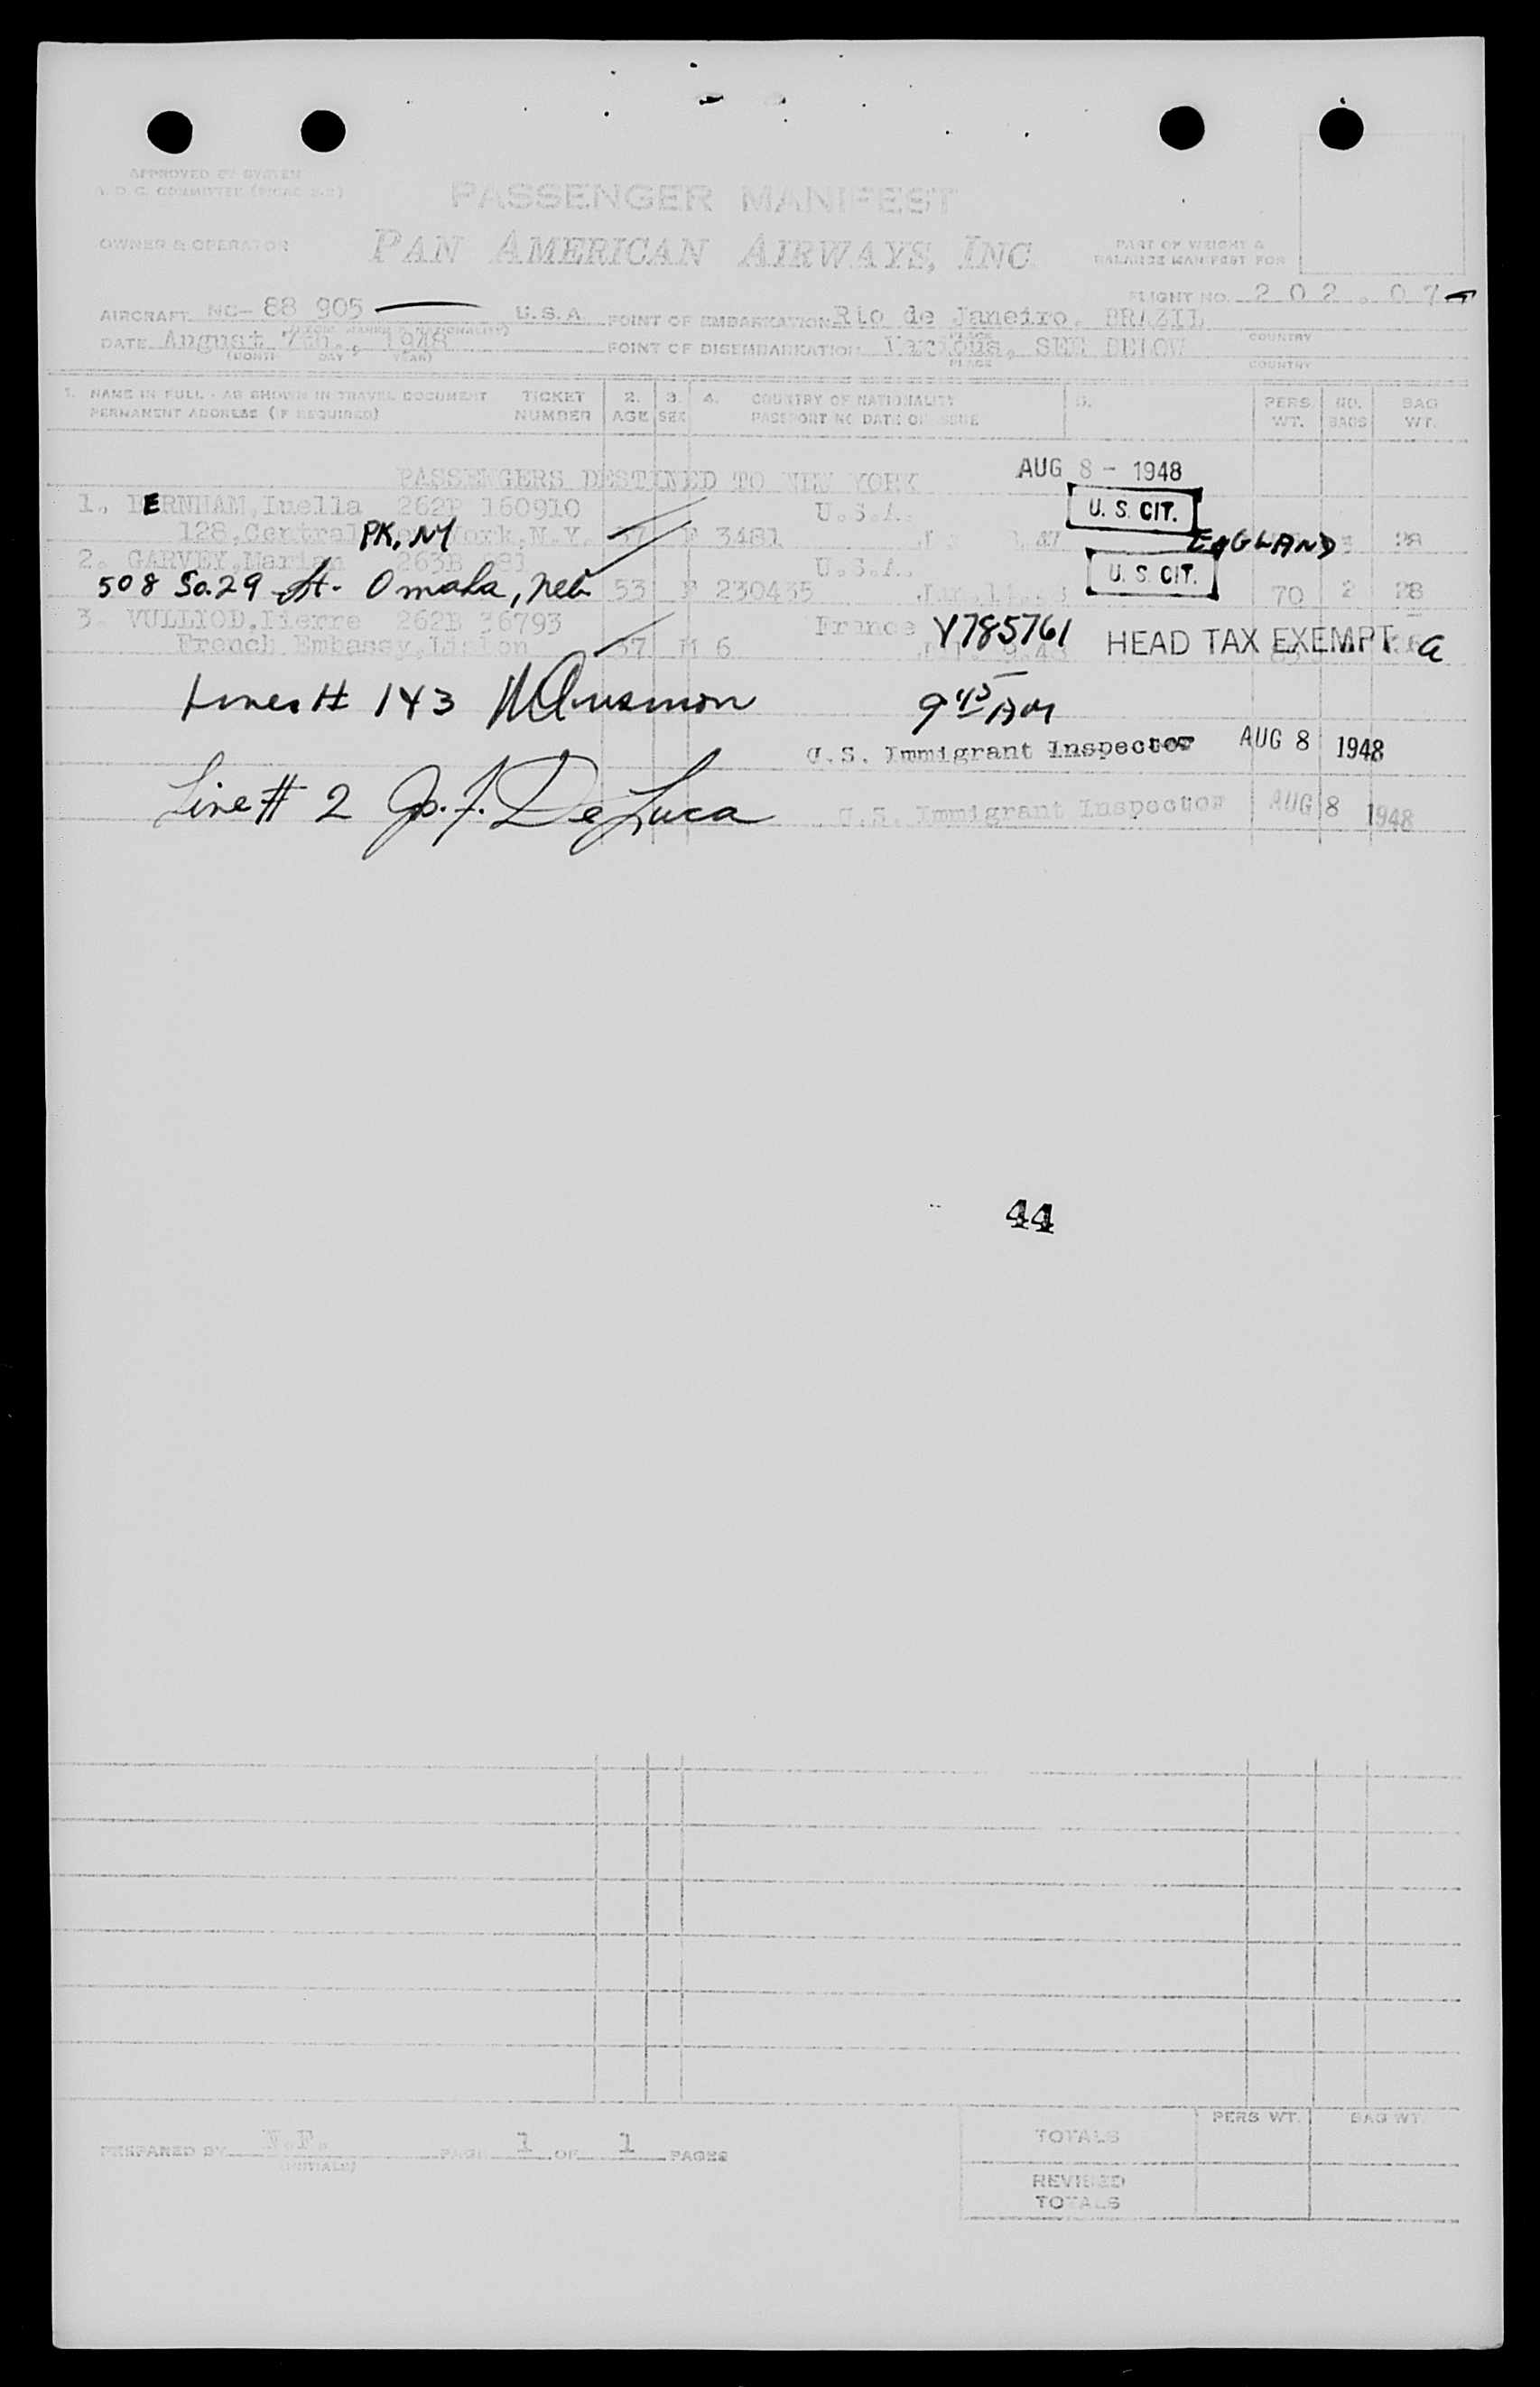 APPROVED BY SYSTEM
A. D. C. COMMITTEE
PASSENGER MANIFEST
OWNER & OPERATOR PAN AMERICAN AIRWAYS, INC.
PART OF WEIGHT &
BALANCE MANIFEST FOR
FLIGHT NO. 202.07
AIRCRAFT NC- 88 905 U.S.A. POINT OF EMBARKATION Rio de Janeiro, BRAZIL
COUNTRY
DATE August 7th., 1948 POINT OF DISEMBARKATION Various, SEE BELOW
(MONTH DAY YEAR) PLACE COUNTRY
1. NAME IN FULL - AS SHOWN IN TRAVEL DOCUMENT TICKET 2. 3. 4. COUNTRY OF NATIONALITY 5. PERS NO. BAG
PERMANENT ADDRESS (IF REQUIRED) NUMBER AGE SEX PASSPORT NO DATE OF ISSUE WT. BAGS WT.
PASSENGERS DESTINED TO NEW YORK AUG 8 - 1948
1. DERNHAM, Luella 262B 160910 U.S.A. U. S. CIT.
128, Central PK. NY York, N.Y. 57 F 3481 47 ENGLAND 3 28
2. GARVEY, Marian 263B 981 U.S.A. U. S. CIT.
508 So. 29 St. Omaha, Neb 53 F 230435 70 2 28
3. VULLIOD, Pierre 262B 36793 France V785761 HEAD TAX EXEMPT G
French Embassy, 37 M 6
Lines # 143 9 45 AM
U.S. Immigrant Inspector AUG 8 1948
Line # 2 Jo. F. DeLuca U.S. Immigrant Inspector AUG 8 1948
44
PERS WT. BAG WT.
PREPARED BY V.F. PAGE 1 OF 1 PAGES TOTALS
(INITIALS)
REVISED
TOTALS